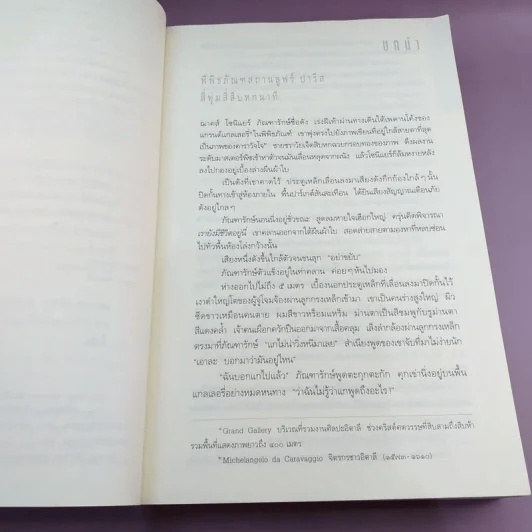 บทนำ
พิพิธภัณฑสถานลูฟร์ ปารีส
สี่ทุ่มสี่สิบหกนาที
ณาคส์ โซนิแยร์ ภัณฑารักษ์ชื่อดัง เร่งฝีเท้าผ่านทางเดินใต้เพดานโค้งของ
แกรนด์แกลเลอรี่*ในพิพิธภัณฑ์ เขาพุ่งตรงไปยังภาพเขียนที่อยู่ใกล้สายตาที่สุด
เป็นภาพของคาราวัจโจ** ชายชราวัยเจ็ดสิบหกฉวยกรอบทองของภาพ ดึงผลงาน
ระดับมาสเตอร์พีซเข้าหาตัวจนมันเลื่อนหลุดจากผนัง แล้วโซนิแยร์ก็ล้มหงายหลัง
ลงไปกองอยู่เบื้องล่างผืนผ้าใบ
เป็นดังที่เขาคาดไว้ ประตูเหล็กเลื่อนลงมาเสียงดังกึกก้องใกล้ๆ นั้น
ปิดกั้นทางเข้าสู่ห้องภายใน พื้นปาร์เกต์สั่นสะเทือน ได้ยินเสียงสัญญาณเตือนภัย
ดังอยู่ไกลๆ
ภัณฑารักษ์นอนนิ่งอยู่ชั่วขณะ สูดลมหายใจเฮือกใหญ่ ครุ่นคิดพิจารณา
เรายังมีชีวิตอยู่นี่ เขาคลานออกจากใต้ผืนผ้าใบ สอดส่ายสายตามองหาที่หลบซ่อน
ไปทั่วพื้นห้องโล่งกว้างนั้น
เสียงหนึ่งดังขึ้นใกล้ตัวจนขนลุก "อย่าขยับ"
ภัณฑารักษ์ตัวแข็งอยู่ในท่าคลาน ค่อยๆ หันไปมอง
ห่างออกไปไม่ถึง ๕ เมตร เบื้องนอกประตูเหล็กที่เลื่อนลงมาปิดกั้นไว้
เงาดำใหญ่โตของผู้จู่โจมจ้องผ่านลูกกรงเหล็กเข้ามา เขาเป็นคนร่างสูงใหญ่ ผิว
ซีดขาวเหมือนคนตาย ผมสีขาวหร็อมแหร็ม ม่านตาเป็นสีชมพูกับรูม่านตา
สีแดงคล้ำ เจ้าคนเผือกควักปืนออกมาจากเสื้อคลุม เล็งลำกล้องผ่านลูกกรงเหล็ก
ตรงมาที่ภัณฑารักษ์ "แกไม่น่าวิ่งหนีมาเลย" สำเนียงพูดของเขาจับที่มาไม่ง่ายนัก
"เอาละ บอกมาว่ามันอยู่ไหน"
"ฉันบอกแกไปแล้ว" ภัณฑารักษ์พูดตะกุกตะกัก คุกเข่านิ่งอยู่บนพื้น
แกลเลอรี่อย่างหมดหนทาง "ว่าฉันไม่รู้ว่าแกพูดถึงอะไร!"
* Grand Gallery บริเวณที่รวมงานศิลปะอิตาลี ช่วงคริสต์ศตวรรษที่สิบสามถึงสิบห้า
รวมพื้นที่แสดงภาพยาวถึง ๔๐๐ เมตร
** Michelangelo da Caravaggio จิตรกรชาวอิตาลี (๑๕๗๓-๑๖๑๐)